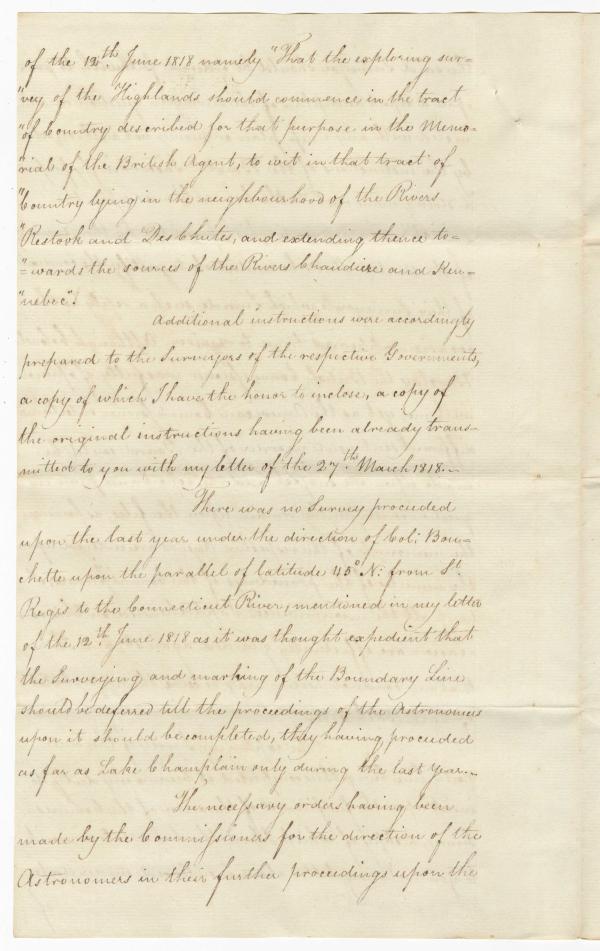 of the 12th. June 1818 namely "That the exploring sur=
"vey of the Highlands should commence in the tract
"of Country described for that purpose in the Memo=
"rial of the British Agent, to wit in that tract of
"Country lying in the neighbourhood of the Rivers
"Restook and DesChutes, and extending thence to=
"=wards the sources of the Rivers Chaudiere and Ken=
"nebec".
Additional instructions were accordingly
prepared to the Surveyors of the respective Governments,
a copy of which I have the honor to inclose, a copy of
the original instructions having been already trans=
mitted to you with my letter of the 27th. March 1818.~
There was no Survey proceeded
upon the last year under the direction of Col: Bou=
chette upon the parallel of latitude 45° N: from St.
Regis to the Connecticut River, mentioned in my letter
of the 12th. June 1818 as it was thought expedient that
the Surveying and marking of the Boundary Line
should be deferred till the proceedings of the Astronomers
upon it should be completed, they having proceeded
as far as Lake Champlain only during the last Year.~
The necessary orders having been
made by the Commissioners for the direction of the
Astronomers in their further proceedings upon the